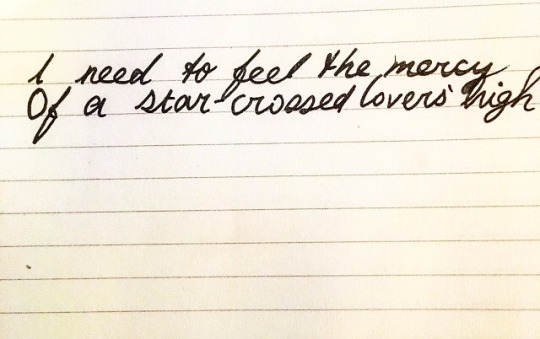 I need to feel the mercy
Of a star-crossed lovers' high